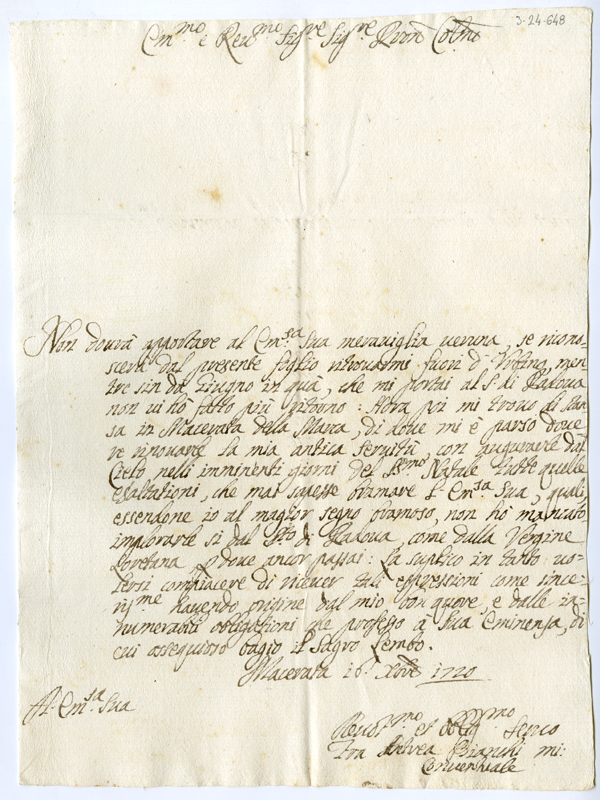 3-24-648
Em.mo e Rev.mo Sig.re Sig.re Pron Col.mo
Non dovrà apportare al Em.sa Sua meraviglia veruna, se ricono-
scerà dal presente foglio ritrovarmi fuori d'Urbino, men
tre sin da Giugno in quà, che mi portai al S. di Padova
non vi hò fatto più ritorno: Hora poi mi trovo di stan
sa in Macerata della Marca, di dove mi è parso dove
re rinovare la mia antica servitù, con augurare dal
Cielo nelli imminenti giorni del S.mo Natale tutte quelle
esaltationi, che mai sapesse bramare l'Em.sa Sua, quali
essendone io al maggior segno bramoso, non hò mancato
implorare si dal S.to di Padova, come dalla Vergine
Loretana dove ancor passai: La suplico in tanto vo-
lersi compiacere di ricever tali espressioni come since-
ris.me havendo origine dal mio bon quore, e dalle in-
numerabili obligationi che professo à Sua Eminensa, di
cui ossequioso bagio il Sagro Lembo.
Macerata 16. Xbre 1720
A S. Em.sa Sua
Devot.mo et Obblig.mo Servo
Fra Andrea Bianchi mi:
Conventuale